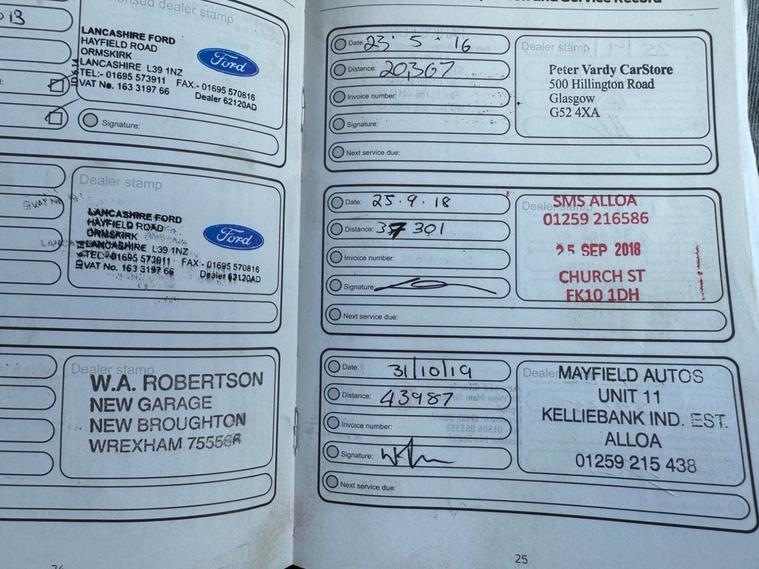 Dealer stamp
13
LANCASHIRE FORD
HAYFIELD ROAD
ORMSKIRK
LANCASHIRE L39 1NZ
TEL:- 01695 573911 FAX:- 01695 570816
VAT No. 163 3197 66 Dealer 62120AD
Ford
Signature:
Dealer stamp
LANCASHIRE FORD
HAYFIELD ROAD
ORMSKIRK
LANCASHIRE L39 1NZ
TEL:- 01695 573911 FAX:- 01695 570816
VAT No. 163 3197 66 Dealer 62120AD
Ford
Dealer stamp
W.A. ROBERTSON
NEW GARAGE
NEW BROUGHTON
WREXHAM
and Service Record
Date: 23 · 5 · 16
Distance: 20,367
Invoice number:
Signature:
Next service due:
Dealer stamp
Peter Vardy CarStore
500 Hillington Road
Glasgow
G52 4XA
Date: 25 · 9 · 18
Distance: 37 301
Invoice number:
Signature:
Next service due:
SMS ALLOA
01259 216586
25 SEP 2018
CHURCH ST
FK10 1DH
Date: 31/10/19
Distance: 43987
Invoice number:
Signature:
Next service due:
Dealer
MAYFIELD AUTOS
UNIT 11
KELLIEBANK IND. EST.
ALLOA
01259 215 438
25